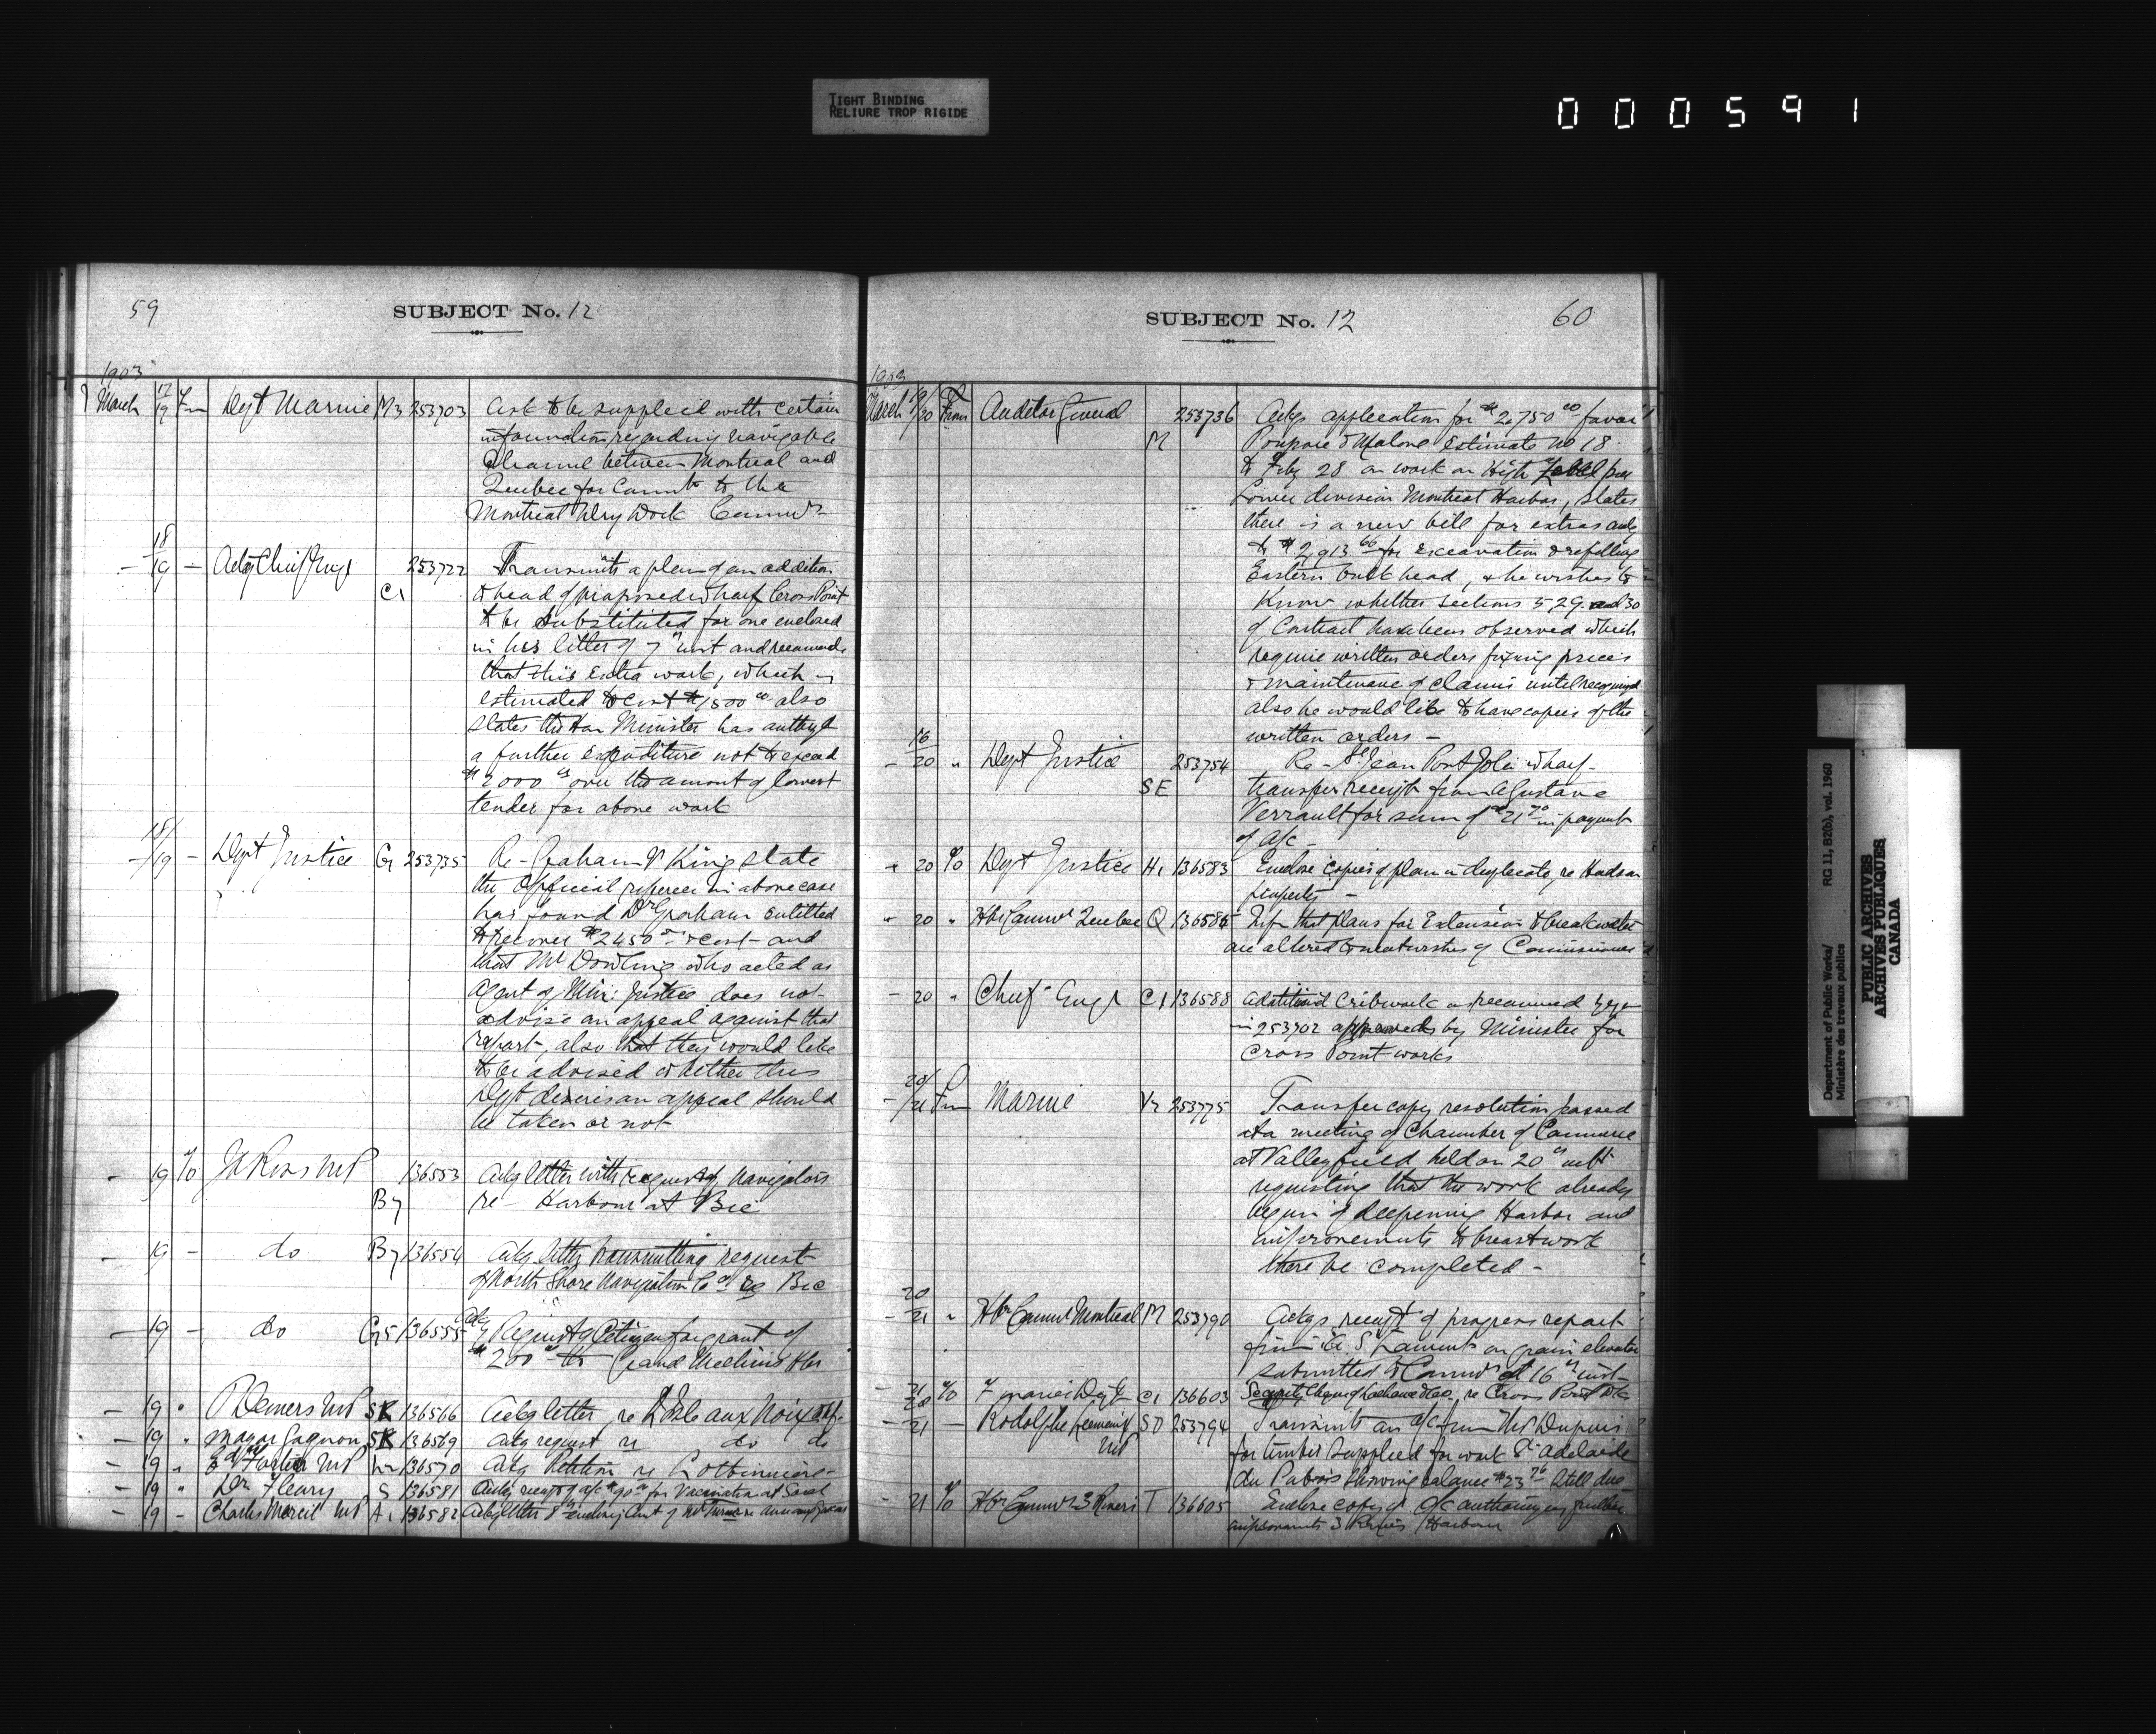 TIGHT BINDING
RELIURE TROP RIGIDE
000591
59
SUBJECT No. 12
1903
March 17/19 Fm Dept Marine M3 253703 Ask to be supplied with certain
information regarding navigable
Channel between Montreal and
Quebec for Commt to the
Montreal Dry Dock Commrs
18/19 - Actg Chief Engr C1 253722 Transmits a plan of an addition
to head of proposed wharf Cross Point
to be substituted for one enclosed
in his letter of 7th inst and recommends
that this Extra work, which is
estimated to cost $1500.00 also
states the Hon Minister has authyd
a further expenditure not to exceed
$2000.00 over the amount of lowest
tender for above work
18/19 - Dept Justice G 253735 Re- Graham v King state
the Official referee in above case
has found Dr Graham entitled
to recover $2450.00 & cost - and
that Mr Dowling who acted as
Agent of Min: Justice does not
advise an appeal against that
report, also that they would like
to be advised whether this
Dept desires an appeal should
be taken or not
- 19 To Ross MP B7 136553 Ackg letter with request of Navigators
re- Harbour at Bic
- 19 - do B7 136554 Ackg letter transmitting request
of North Shore Navigation Co re Bic
- 19 - do G5 136555 Ackg Request of Citizens for grant of
$200.00 to Grand Mechins Hbr
- 19 " Demers MP SK 136566 Ackg letter re Isle aux Noix
- 19 " Mayor Gagnon SK 136569 Ackg request re do do
- 19 " Fortier MP 136570 Ackg Petition re Lotbiniere-
- 19 " Dr Fleury S 136581 Ackg receipt of a/c for Vaccination at Sorel
- 19 - Charles Marcil MP A1 136582 Ackg letter
60
SUBJECT No. 12
1903
March 19/20 From Auditor General M 253736 Ackgs application for $2,750.00 favor
Poupore & Malone Estimate No 18
to Feby 28 on work on High level pier
Lower division Montreal Harbor, states
there is a new bill for extras
to $2,913.66 for excavation & refilling
Eastern bulk head, & he wishes to
Know whether sections 5 29 and 30
of Contract have been observed which
require written orders fixing prices
& maintenance of claims until recognized
also he would like to have copies of the
written orders -
16/20 " Dept Justice SE 253754 Re- St Jean Port Joli wharf-
transfer receipt from A Gustave
Verrault for sum of $21.70 in payment
of a/c -
" 20 To Dept Justice H1 136583 Enclose copies of plan in duplicate, re Hudson
property -
" 20 " Hbr Commrs Quebec Q 136585 Infm that plans for Extension to breakwater
are altered to meet wishes of Commissioners
- 20 " Chief Engr C1 136588 Additional cribwork as recommd by
in 253702 approved by Minister for
Cross Point works
- 20/21 Fm Marine V2 253775 Transfer copy resolution passed
at a meeting of Chamber of Commerce
at Valleyfield held on 20th ult
requesting that the work already
begun of deepening Harbor and
improvements to breastwork
there be completed -
20/21 " Hbr Commrs Montreal M 253790 Ackgs receipt of progress report
from on grain elevator
submitted to Commrs at 16th inst-
C1 136603 re Cross Point
- 21 - Rodolphe Lemieux MP SD 253794 Transmits an a/c from Dupuis
for timber supplied for work St Adelaide
du Pabois showing balance $23.76 still due
- 21 To Hbr Commrs 3 Rivers T 136605 Enclose copy of o/c authorizing further
improvements 3 Rivers Harbour
Department of Public Works/
Ministère des travaux publics
RG 11, B2(b), vol. 1960
PUBLIC ARCHIVES
ARCHIVES PUBLIQUES
CANADA